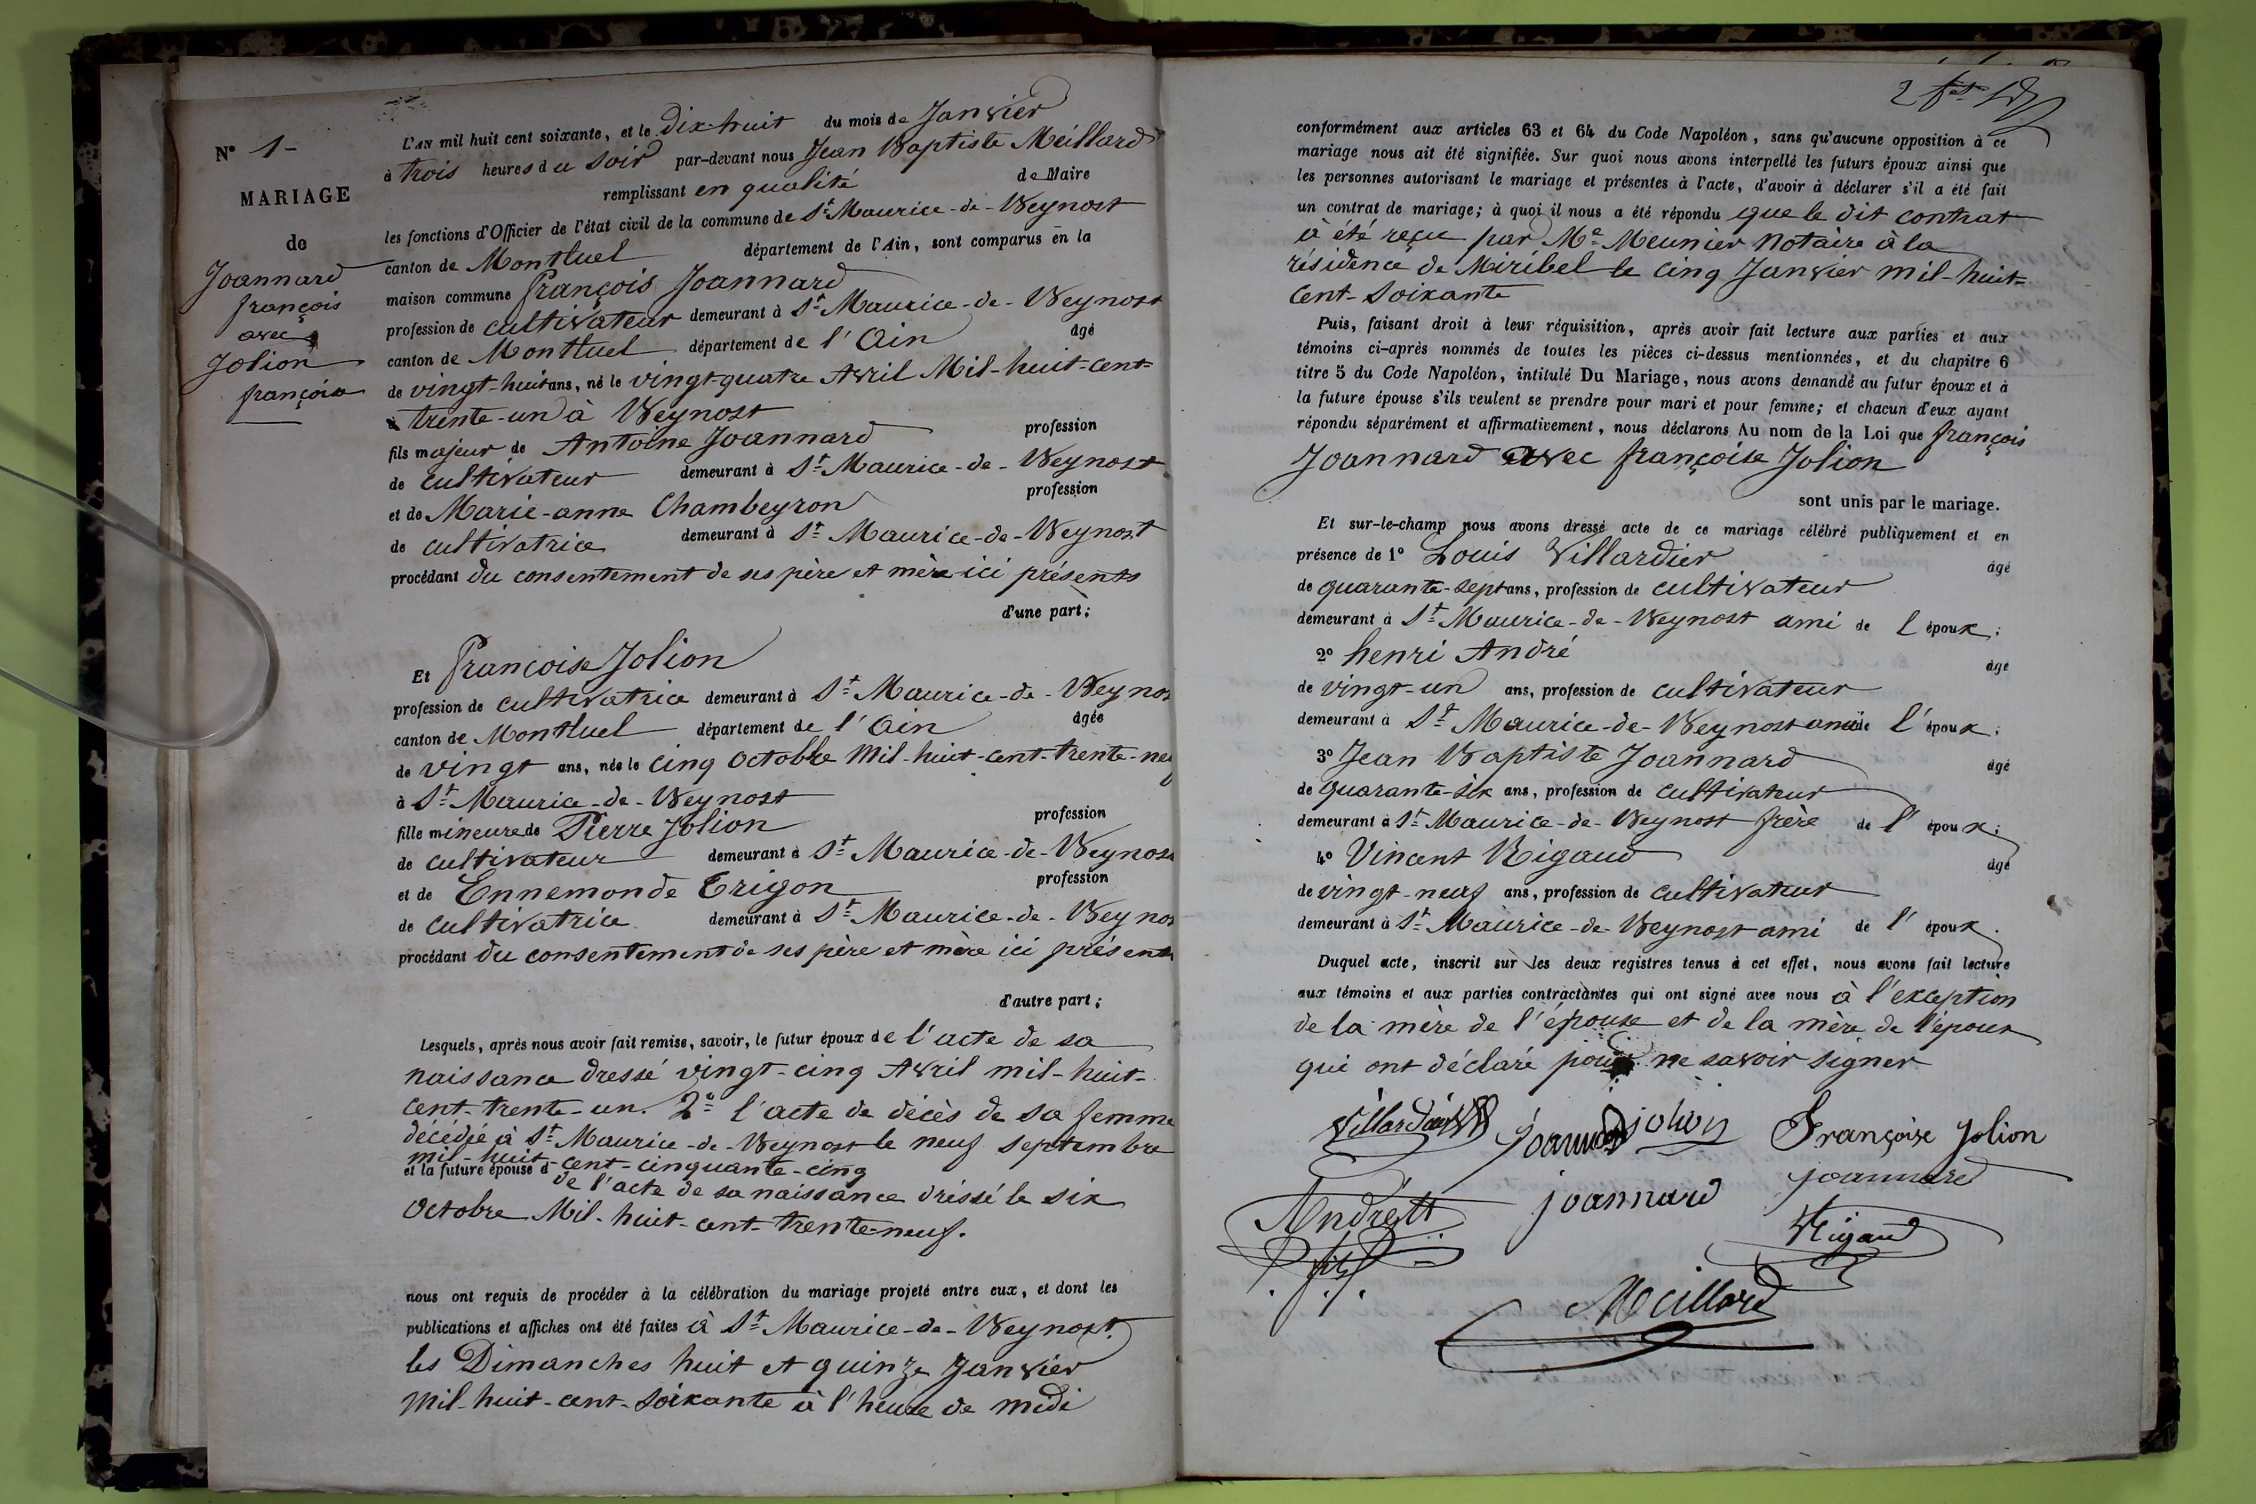 N° 1-
MARIAGE
de
Joannard
françois
avec
Jolion
françoise
L'AN mil huit cent soixante, et le Dix-huit du mois de Janvier
à trois heures du soir par-devant nous Jean Baptiste Meillard
remplissant en qualité de Maire
les fonctions d'Officier de l'état civil de la commune de St Maurice-de-Beynost
canton de Montluel département de l'Ain, sont comparus en la
maison commune françois Joannard
profession de cultivateur demeurant à St Maurice-de-Beynost
canton de Montluel département de l'Ain âgé
de vingt-huit ans, né le vingt-quatre Avril Mil-huit-cent-
trente-un à Beynost
fils majeur de Antoine Joannard profession
de cultivateur demeurant à St Maurice-de-Beynost
et de Marie-anne Chambeyron profession
de cultivatrice demeurant à St Maurice-de-Beynost
procédant du consentement de ses père et mère ici présents
d'une part;
Et françoise Jolion
profession de cultivatrice demeurant à St Maurice-de-Beynos
canton de Montluel département de l'Ain âgée
de vingt ans, née le cinq octobre Mil-huit-cent-trente-neu
à St Maurice-de-Beynost
fille mineure de Pierre Jolion profession
de cultivateur demeurant à St Maurice-de-Beynos
et de Ennemonde Trigon profession
de cultivatrice demeurant à St Maurice-de-Beynos
procédant du consentement de ses père et mère ici présents
d'autre part;
Lesquels, après nous avoir fait remise, savoir, le futur époux de l'acte de sa
naissance dressé vingt-cinq Avril mil-huit-
cent-trente-un. 2° l'acte de décès de sa femme
décédée à St Maurice-de-Beynost le neuf septembre
mil-huit-cent-cinquante-cinq
et la future épouse d de l'acte de sa naissance dressé le six
octobre Mil-huit-cent-trente-neuf.
nous ont requis de procéder à la célébration du mariage projeté entre eux, et dont les
publications et affiches ont été faites à St Maurice-de-Beynost.
les Dimanches huit et quinze Janvier
Mil-huit-cent-soixante à l'heure de midi
conformément aux articles 63 et 64 du Code Napoléon, sans qu'aucune opposition à ce
mariage nous ait été signifiée. Sur quoi nous avons interpellé les futurs époux ainsi que
les personnes autorisant le mariage et présentes à l'acte, d'avoir à déclarer s'il a été fait
un contrat de mariage; à quoi il nous a été répondu que le dit contrat
à été reçu par Me Meunier notaire à la
résidence de Miribel le cinq Janvier mil-huit-
cent-soixante
Puis, faisant droit à leur réquisition, après avoir fait lecture aux parties et aux
témoins ci-après nommés de toutes les pièces ci-dessus mentionnées, et du chapitre 6
titre 5 du Code Napoléon, intitulé Du Mariage, nous avons demandé au futur époux et à
la future épouse s'ils veulent se prendre pour mari et pour femme; et chacun d'eux ayant
répondu séparément et affirmativement, nous déclarons Au nom de la Loi que françois
Joannard avec françoise Jolion
sont unis par le mariage.
Et sur-le-champ nous avons dressé acte de ce mariage célébré publiquement et en
présence de 1° Louis Villardier âgé
de quarante-sept ans, profession de cultivateur
demeurant à St Maurice-de-Beynost ami de l époux;
2° henri André âgé
de vingt-un ans, profession de cultivateur
demeurant à St Maurice-de-Beynost ami de l'époux;
3° Jean Baptiste Joannard âgé
de quarante-six ans, profession de cultivateur
demeurant à St Maurice-de-Beynost frère de l'époux;
4° Vincent Rigaud âgé
de vingt-neuf ans, profession de cultivateur
demeurant à St Maurice-de-Beynost ami de l'époux.
Duquel acte, inscrit sur les deux registres tenus à cet effet, nous avons fait lecture
aux témoins et aux parties contractantes qui ont signé avec nous à l'exception
de la mère de l'épouse et de la mère de l'époux
qui ont déclaré ne savoir signer
Villardier Joannard jolion Françoise Jolion
André joannard joannard
fils Rigaud
Meillard